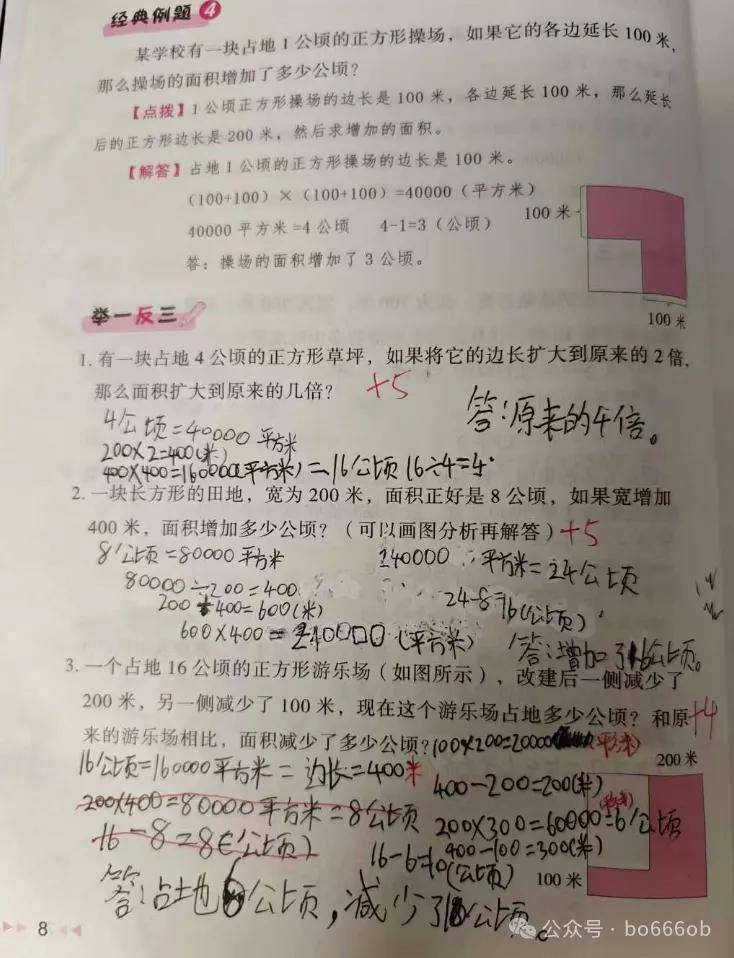 经典例题 4
某学校有一块占地1公顷的正方形操场，如果它的各边延长100米，
那么操场的面积增加了多少公顷？
【点拨】1公顷正方形操场的边长是100米，各边延长100米，那么延长
后的正方形边长是200米，然后求增加的面积。
【解答】占地1公顷的正方形操场的边长是100米。
(100+100)×(100+100)=40000（平方米）
40000平方米=4公顷 4-1=3（公顷）
100米
答：操场的面积增加了3公顷。
100米
举一反三
1. 有一块占地4公顷的正方形草坪，如果将它的边长扩大到原来的2倍，
那么面积扩大到原来的几倍？ +5
答：原来的4倍。
4公顷=40000平方米
200×2=400(米)
400×400=160000(平方米)=16公顷 16÷4=4
2. 一块长方形的田地，宽为200米，面积正好是8公顷，如果宽增加
400米，面积增加多少公顷？（可以画图分析再解答）+5
8公顷=80000平方米 240000平方米=24公顷
80000÷200=400
24-8=16(公顷)
200+400=600(米)
600×400=240000(平方米)
答：增加了16公顷。
3. 一个占地16公顷的正方形游乐场（如图所示），改建后一侧减少了
200米，另一侧减少了100米，现在这个游乐场占地多少公顷？和原 +4
来的游乐场相比，面积减少了多少公顷？100×200=20000(平方米)
200米
16公顷=160000平方米=边长=400米
400-200=200(米)
200×400=80000平方米=8公顷
200×300=60000=6公顷
(平方米)
16-8=8(公顷)
400-100=300(米)
16-6=10(公顷)
100米
答：占地6公顷，减少了10公顷
8
公众号·bo666ob